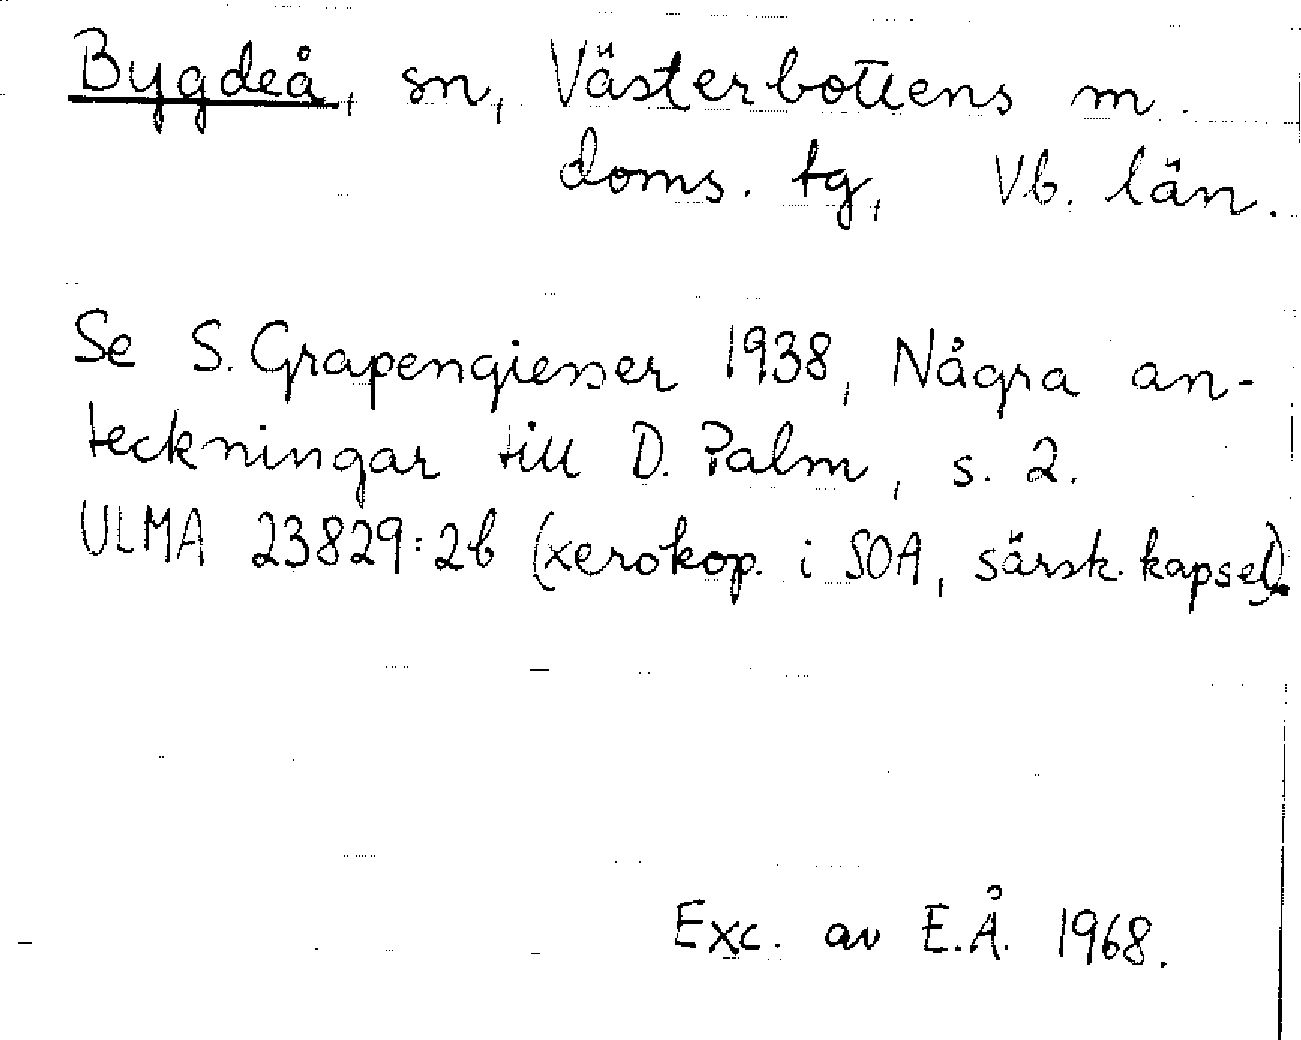 Bygdeå, sn, Västerbottens m.
doms. tg, Vb. län.
Se S. Grapengiesser 1938, Några an-
teckningar till D. Palm, s. 2.
ULMA 23829:2b (xerokop. i SOA, särsk. kapsel).
Exc. av E.Å. 1968.